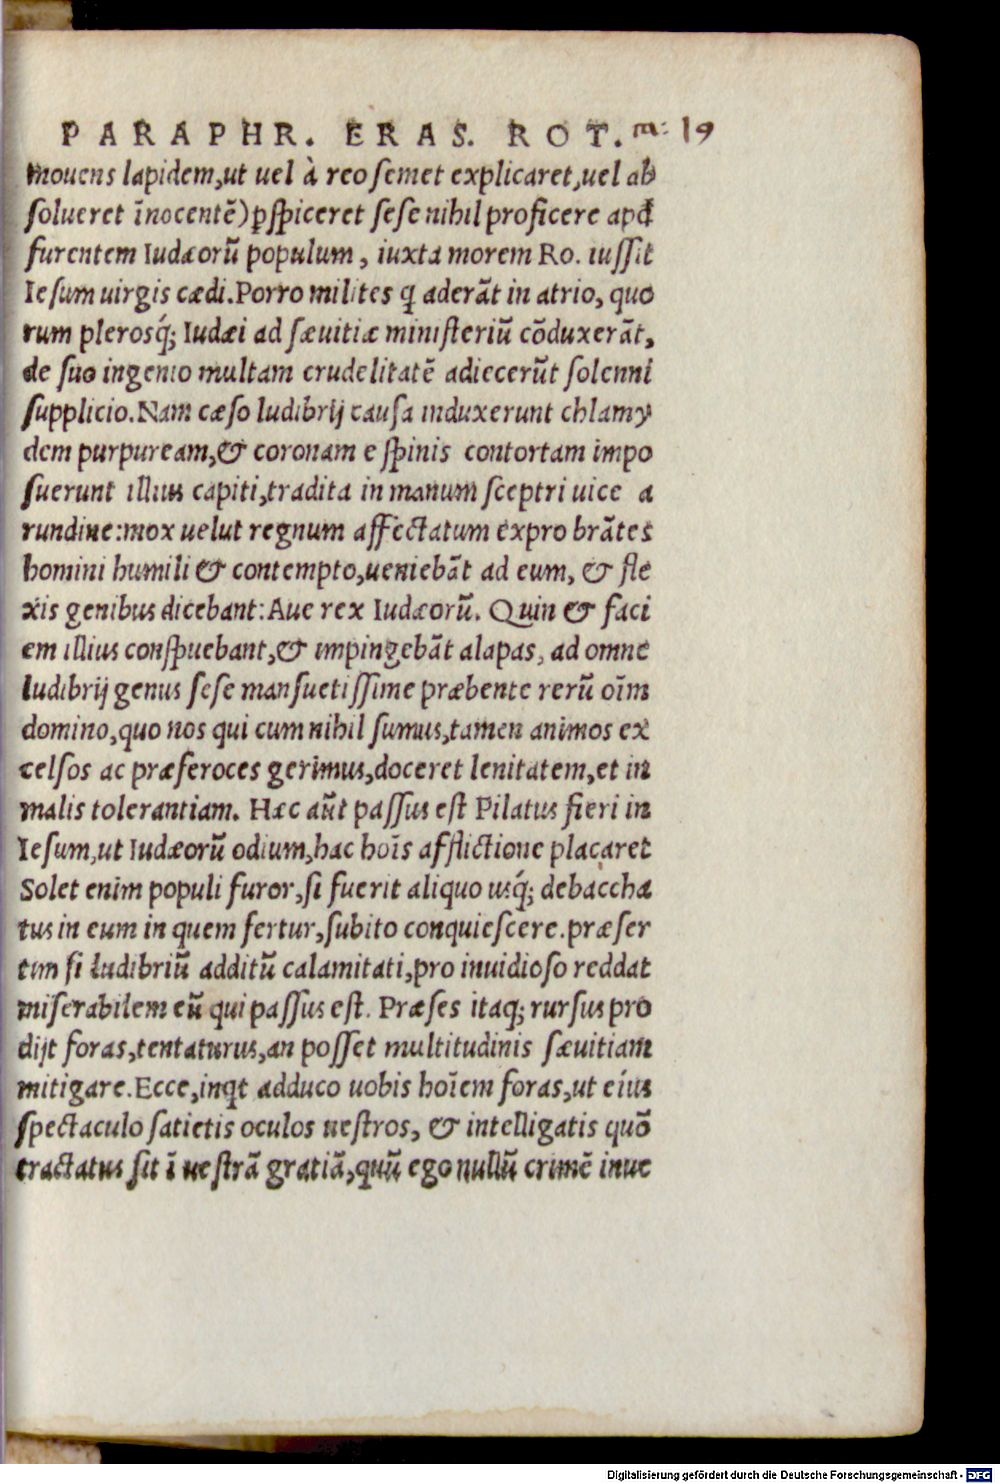 PARAPHR. ERAS. ROT. m: 19
mouens lapidem,ut uel à reo semet explicaret,uel ab
solueret īnocentē)ꝑspiceret sese nihil proficere apđ
furentem Iudæorū populum, iuxta morem Ro. iussit
Iesum uirgis cædi.Porro milites q̄ aderāt in atrio, quo
rum plerosq́; Iudæi ad sæuitiæ ministeriū cōduxerāt,
de suo ingenio multam crudelitatē adiecerūt solenni
supplicio.Nam cæso ludibrij causa induxerunt chlamy
dem purpuream,& coronam e spinis contortam impo
suerunt illius capiti,tradita in manum sceptri uice a
rundine:mox uelut regnum affectatum expro brātes
homini humili & contempto,ueniebāt ad eum, & fle
xis genibus dicebant:Aue rex Iudæorū. Quin & faci
em illius conspuebant,& impingebāt alapas, ad omne
ludibrij genus sese mansuetissime præbente rerū oīm
domino,quo nos qui cum nihil sumus,tamen animos ex
celsos ac præferoces gerimus,doceret lenitatem,et in
malis tolerantiam. Hæc aūt passus est Pilatus fieri in
Iesum,ut Iudæorū odium,hac hoīs afflictione placaret
Solet enim populi furor,si fuerit aliquo usq́; debaccha
tus in eum in quem fertur,subito conquiescere.præser
tim si ludibriū additū calamitati,pro inuidioso reddat
miserabilem eū qui passus est. Præses itaq; rursus pro
dijt foras,tentaturus,an posset multitudinis sæuitiam
mitigare.Ecce,inqt adduco uobis hoīem foras,ut eíus
spectaculo satietis oculos uestros, & intelligatis quō
tractatus sit ī uestrā gratiā,quū ego nullū crimē inue
Digitalisierung gefördert durch die Deutsche Forschungsgemeinschaft - DFG